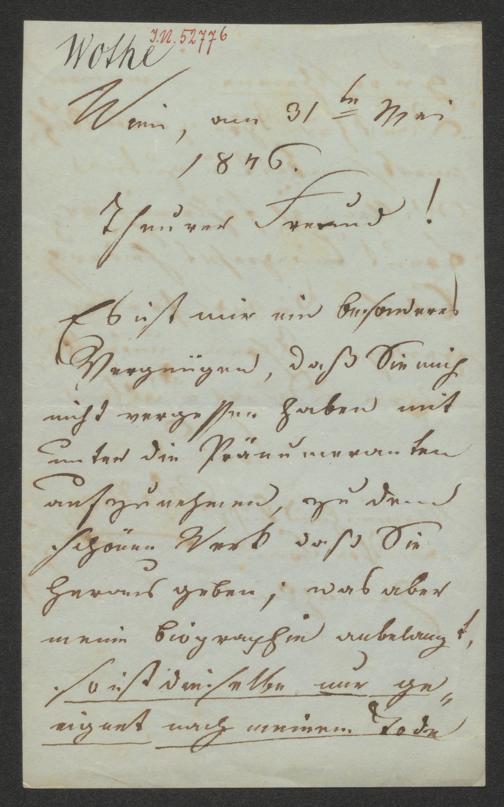 Wothe
I.N. 52776
Wien, am 31ten Mai
1846.
Theurer Freund!
Es ist mir ein besonderes
Vergnügen, daß Sie mich
nicht vergessen haben mit
unter die Pränumeranten
aufzunehmen, zu dem
schönen Werk daß Sie
heraus geben; was aber
meine Biographie anbelangt,
so ist dieselbe nur ge„
eignet nach meinem Tode